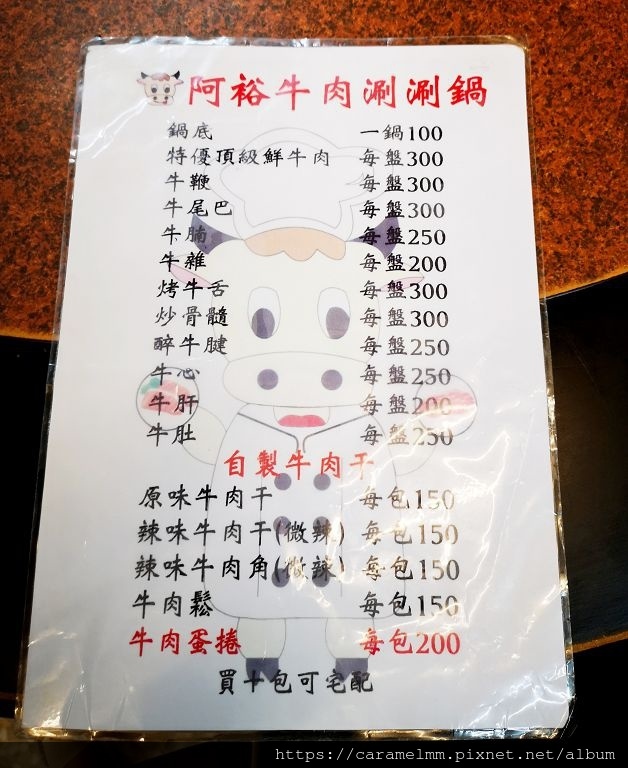 阿裕牛肉涮涮鍋
鍋底 一鍋100
特優頂級鮮牛肉 每盤300
牛鞭 每盤300
牛尾巴 每盤300
牛腩 每盤250
牛雜 每盤200
烤牛舌 每盤300
炒骨髓 每盤300
醉牛腱 每盤250
牛心 每盤250
牛肝 每盤200
牛肚 每盤250
自製牛肉干
原味牛肉干 每包150
辣味牛肉干(微辣) 每包150
辣味牛肉角(微辣) 每包150
牛肉鬆 每包150
牛肉蛋捲 每包200
買十包可宅配
https://caramelmm.pixnet.net/album